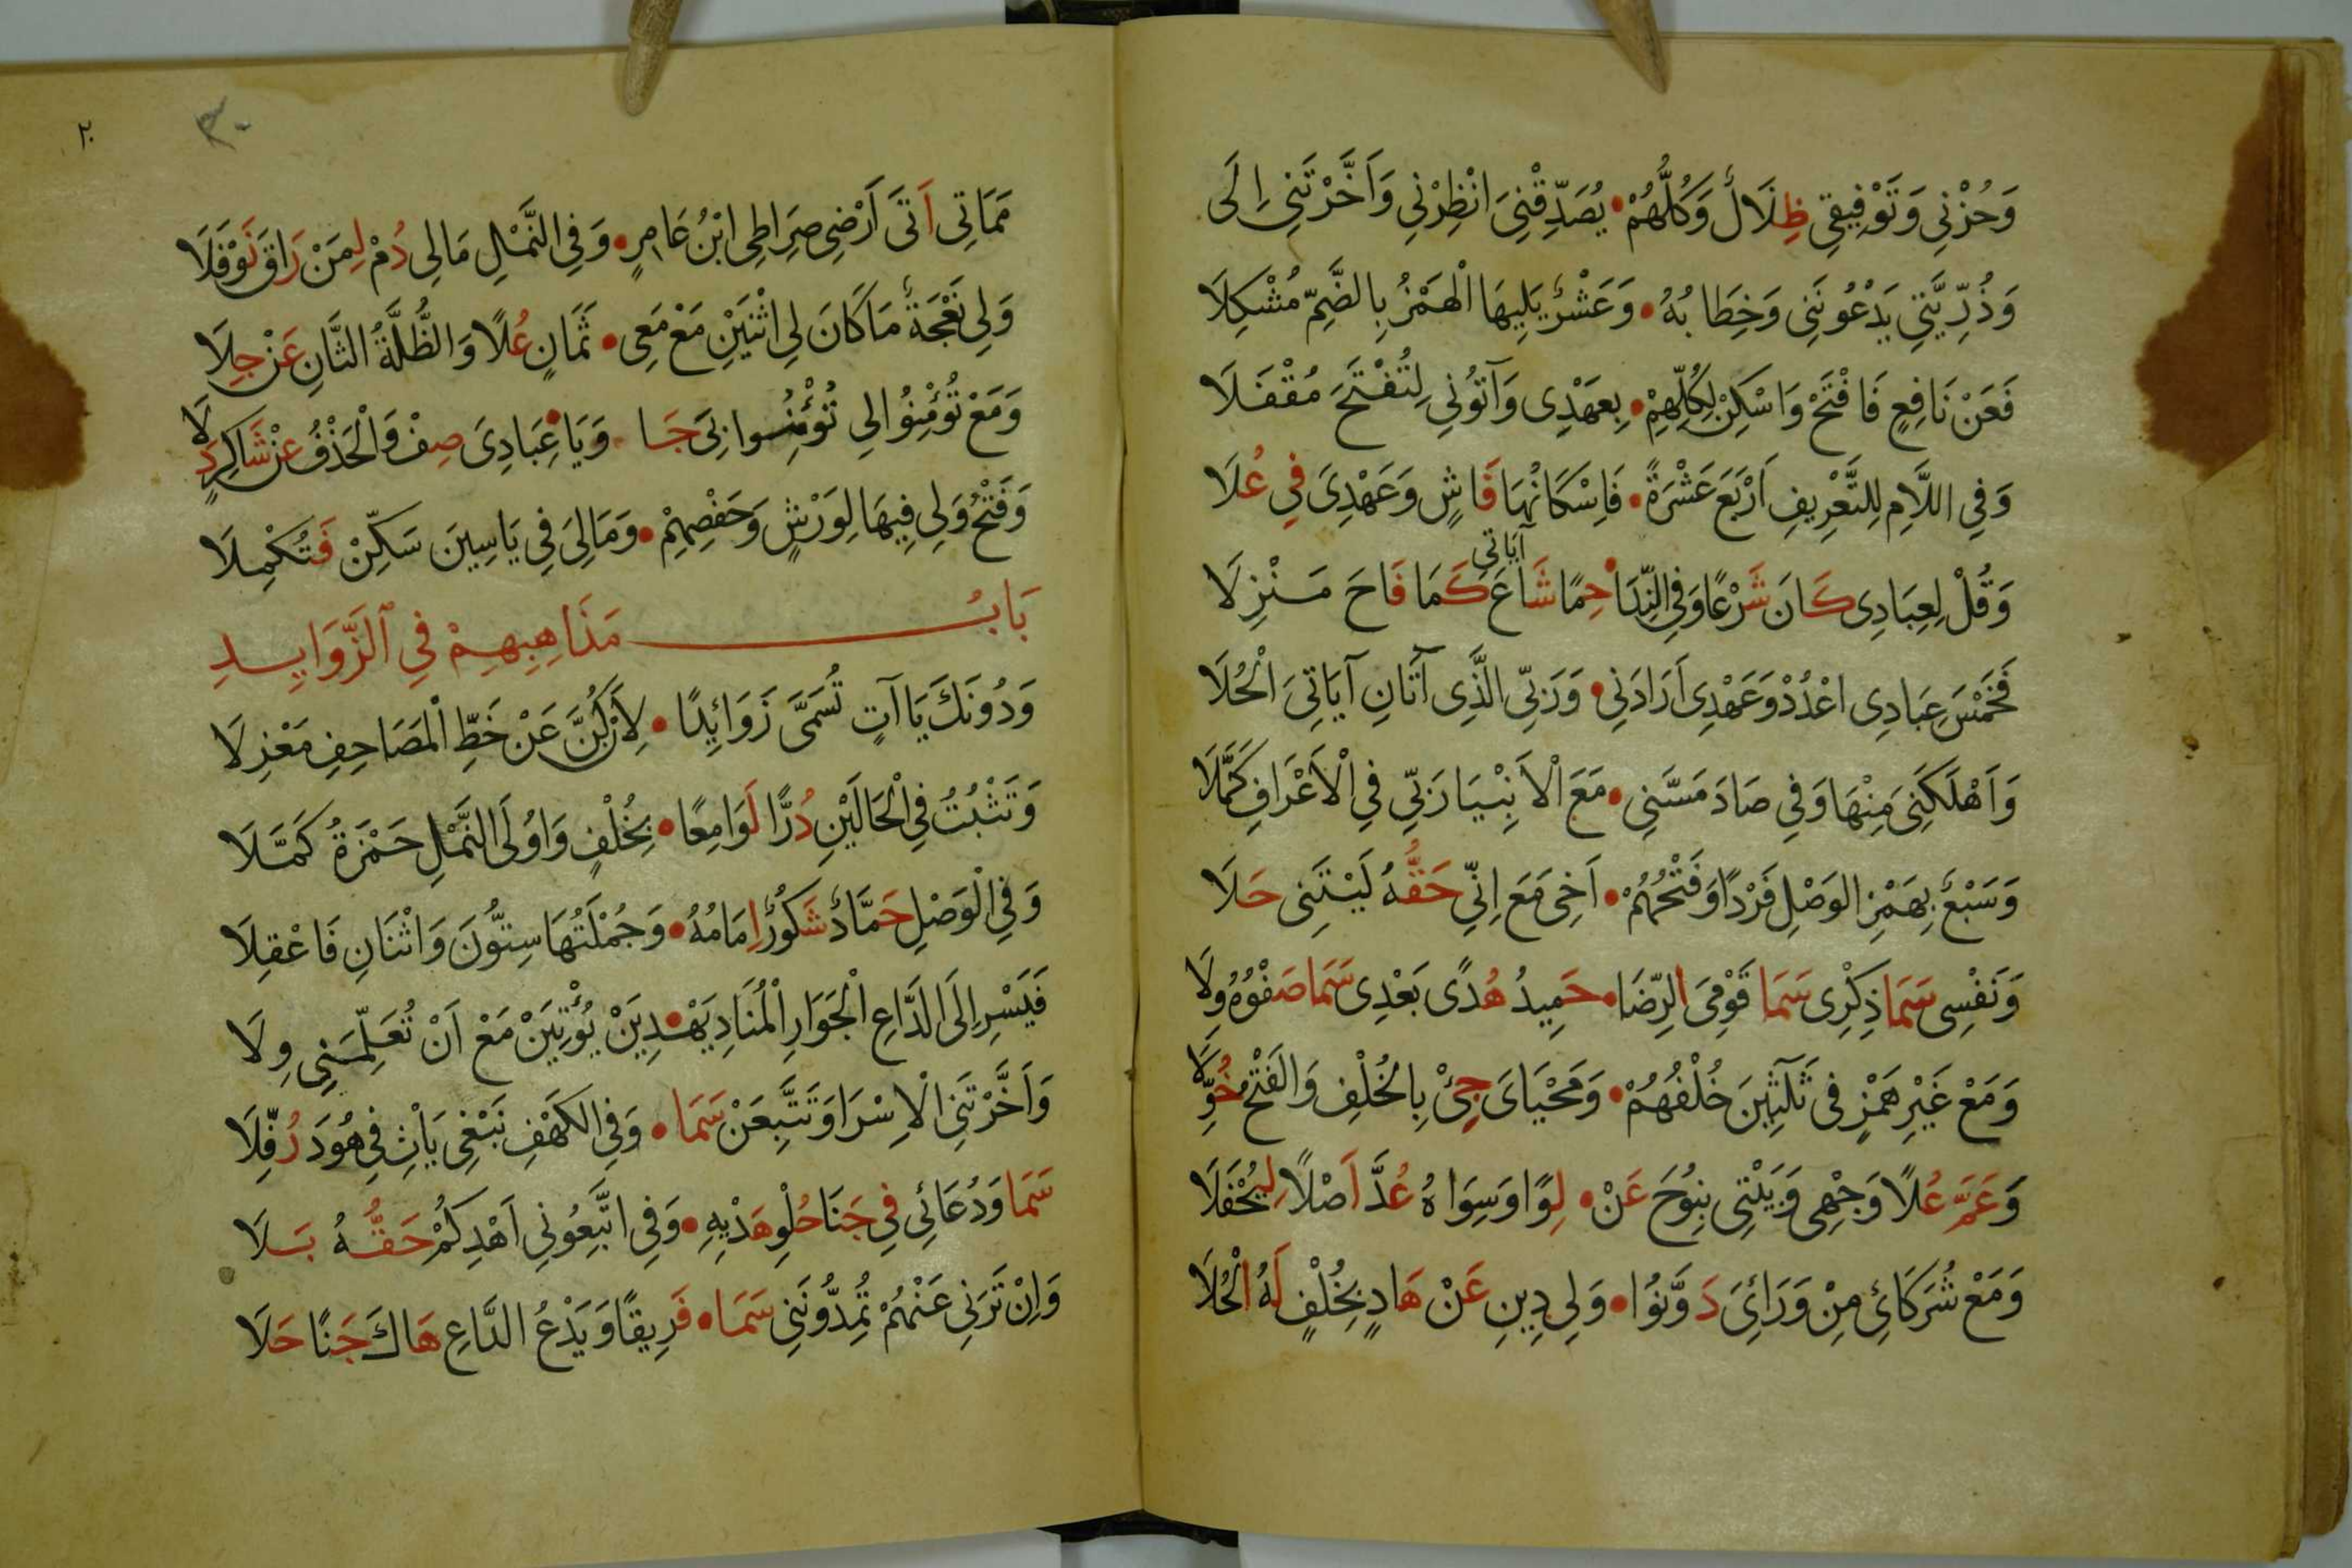 وَحُزْنِى وَتَوْفِيقِى ظِلَالٌ وَكُلُّهُمْ • يُصَدِّقْنِىَ انْظِرْنِى وَاَخَّرْتَنِى اِلَى
وَذُرِّيَّتِى يَدْعُونَنِى وَخِطَابُهُ • وَعَشْرٌ يَلِيهَا الْهَمْزُ بِالضَّمِّ مُشْكِلَا
فَعَنْ نَافِعٍ فَافْتَحْ وَاسْكِنْ لِكُلِّهِمْ • بِعَهْدِى وَآتُونِى لِتُفْتَحَ مُقْفَلَا
وَفِى اللَّامِ لِلتَّعْرِيفِ اَرْبَعَ عَشْرَةً • فَاِسْكَانُهَا فَاشٍ وَعَهْدِىَ فِى عُلَا
وَقُلْ لِعِبَادِى كَانَ شَرْعًا وَفِى النِّدَا • حِمًا شَاعَ آيَاتِى كَمَا فَاحَ مَنْزِلَا
فَخَمْسَ عِبَادِى اعْدُدْ وَعَهْدِى اَرَادَنِى • وَرَبِّى الَّذِى آتَانِ آيَاتِىَ الْحُلَا
وَاَهْلَكَنِىَ مِنْهَا وَفِى صَادَ مَسَّنِى • مَعَ الْاَنْبِيَا رَبِّى فِى الْاَعْرَافِ كَمَّلَا
وَسَبْعٌ بِهَمْزِ الوَصْلِ فَرْدًا وَفَتْحُهُمْ • اَخِى مَعَ اِنِّى حَقُّهُ لَيْتَنِى حَلَا
وَنَفْسِى سَمَا ذِكْرِى سَمَا قَوْمِىَ الرِّضَا • حَمِيدُ هُدًى بَعْدِى سَمَا صَفْوُهُ وِلَا
وَمَعْ غَيْرِ هَمْزٍ فِى ثَلٰثِينَ خُلْفُهُمْ • وَمَحْيَاىَ جِئْ بِالخُلْفِ وَالفَتْحُ خُوِّلَا
وَعَمَّ عُلًا وَجْهِى وَبَيْتِى بِنُوحَ عَنْ • لِوًا وَسِوَاهُ عُدَّ اَصْلًا لِيُحْفَلَا
وَمَعْ شُرَكَائِ مِنْ وَرَائِىَ دَوَّنُوا • وَلِى دِينِ عَنْ هَادٍ بِخُلْفٍ لَهُ الْحُلَا
٢٠
٣٠
مَمَاتِى اَتَى اَرْضِى صِرَاطِى ابْنُ عَامِرٍ • وَفِى النَّمْلِ مَالِى دُمْ لِمَنْ رَاقَ نَوْفَلَا
وَلِى نَعْجَةٌ مَا كَانَ لِى اثْنَيْنِ مَعْ مَعِى • ثَمَانٍ عُلًا وَالظُّلَّةُ الثَّانِ عَنْ جِلَا
وَمَعْ تُؤْمِنُوا لِى تُؤْمِنُوا بِىَ جَا • وَيَا عِبَادِىَ صِفْ وَالْحَذْفُ عَنْ شَاكِرٍ دَلَا
وَفَتْحُ وَلِى فِيهَا لِوَرْشٍ وَحَفْصِهِمْ • وَمَالِىَ فِى يَاسِينَ سَكِّنْ فَتُكْمِلَا
بَابُ مَذَاهِبِهِمْ فِى الزَّوَايِدِ
وَدُونَكَ يَاآتٍ تُسَمَّى زَوَائِدًا • لِاَنْ كُنَّ عَنْ خَطِّ الْمَصَاحِفِ مَعْزِلَا
وَتَثْبُتُ فِى الْحَالَيْنِ دُرًّا لَوَامِعًا • بِخُلْفٍ وَاُولَى النَّمْلِ حَمْزَةُ كَمَّلَا
وَفِى الْوَصْلِ حَمَّادٌ شَكُورٌ اِمَامُهُ • وَجُمْلَتُهَا سِتُّونَ وَاثْنَانِ فَاعْقِلَا
فَيَسْرِ اِلَى الدَّاعِ الْجَوَارِ الْمُنَادِ يَهْدِيَنْ • يُؤْتِيَنْ مَعْ اَنْ تُعَلِّمَنِى وِلَا
وَاَخَّرْتَنِى الْاِسْرَا وَتَتَّبِعَنْ سَمَا • وَفِى الكَهْفِ نَبْغِى يَأْتِ فِى هُودَ رُفِّلَا
سَمَا وَدُعَائِى فِى جَنَا حُلْوِ هَدْيِهِ • وَفِى اتَّبِعُونِى اَهْدِكُمْ حَقُّهُ بَلَا
وَاِنْ تَرَنِى عَنْهُمْ تُمِدُّونَنِى سَمَا • فَرِيقًا وَيَدْعُ الدَّاعِ هَاكَ جَنًا حَلَا